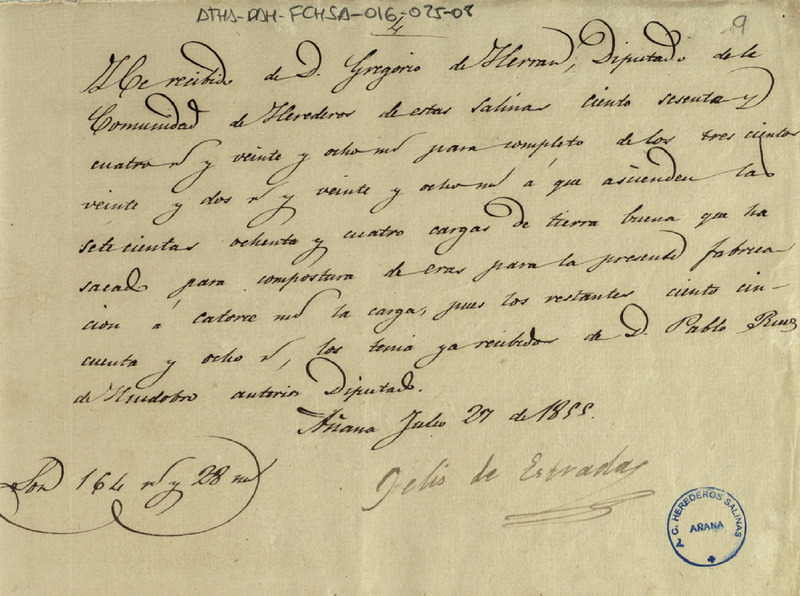 ATHA-DAH-FCHSA-016-025-08
4
9
He recibido de D. Gregorio de Herran, Diputado de la
Comunidad de Herederos de estas Salinas ciento sesenta y
cuatro rs y veinte y ocho ms para completo de los trescientos
veinte y dos rs y veinte y ocho ms á que ascienden las
setecientas ochenta y cuatro cargas de tierra buena que ha
sacado para compostura de eras para la presente fabrica
cion á catorce ms la carga, pues los restantes ciento cin-
cuenta y ocho rs, los tenia ya recibidos de D. Pablo Ruiz
de Huidobro anterior Diputado.
Añana Julio 27 de 1855.
Son 164 rs y 28 ms
Felis de Estrada
C. HEREDEROS SALINAS
AÑANA